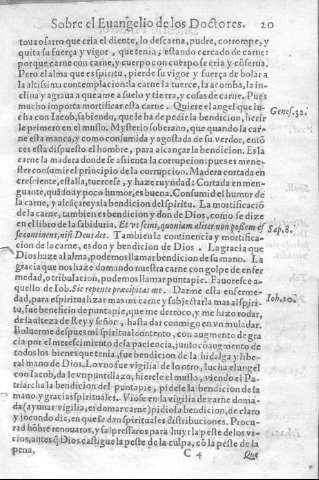 Sobre el Euangelio de los Doctores. 20
toua o sarro que cria el diente, lo descarna, pudre, corrompe, y
quita su fuerça y vigor, que tenia, estando cercado de carne:
porque carne con carne, y cuerpo con cuerpo se cria y cõserua.
Pero el alma que es spiritu, pierde su vigor y fuerça de bolar a
la altissima contemplacion: la carne la tuerce, la acomba, la in-
clina y agraua a que ame a suelo y tierra, y cosas de carne. Pues
mucho importa mortificar esta carne. Quiere el angel que lu-
cha con Iacob, sabiendo, que le ha de pedir la bendicion, herir
le primero en el muslo. Mysterio soberano, que quando la car-
ne esta manca, y como consumida y agostada de su verdor, entõ
ces esta dispuesto el hombre, para alcançar la bendicion. Es la
carne la madera donde se assienta la corrupcion: pues es menes-
ter consumir el principio de la corrupcion. Madera cortada en
creciente, estalla, tuerce se, y haze ruyndad: Cortada en men-
guante, quãdo ay poco humor, es buena. Consumid el humor de
la carne, y alcãçareys la bendicion del spiritu. La mortificació
de la carne, tambien es bendicion y don de Dios, como se dize
en el libro de la sabiduria. Et vt sciui, quoniam aliter non possem eſ
se continent, nisi Deus det. Tambien la continencia y mortifica-
cion de la carne, es don y bendicion de Dios. La gracia que
Dios haze al alma, podemos llamar bendicion de su mano. La
gracia que nos haze domando nuestra carne con golpe de enfer
medad, o tribulacion, podemos llamar puntapie. Fauoresce a-
quello de Iob. Sic repente præcipitas me. Darme esta enferme-
dad, para espiritualizar mas mi carne y subjectarla mas al spiri-
tu, fue beneficio de puntapie, que me derroco, y me hizo rodar,
desde la alteza de Rey y señor, hasta dar conmigo en vn muladar.
Boluerme despues mi spiritual contento, con augmento de gra
cia por el merescimiento de la paciencia, junto cõ augmento de
todos los bienes que tenia, fue bendicion de la hidalga y libe-
ral mano de Dios. Lo vno fue vigilia de lo otro, lucha el angel
con Iacob, da le vn puntillazo, hierele el muslo, viendo el Pa-
triarcha la bendicion del puntapie, pidele la bendicion de la
mano, y gracias spirituales. Viose en la vigilia de carne doma-
da (ayunar vigilia, es domar carne) pidio la bendicion, de claro
y jocundo dia, en que se dan spirituales distribuciones. Procu-
rad hõbre renouaros, y sal pressaros para huyr la peste de los vi-
cios, antes q̃ Dios castigue la peste de la culpa, cõ la peste de la
pena.
C 4
Que
Genes. 32.
Sap. 8.
Iob. 30.